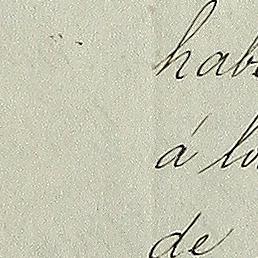 hab
á lo
de